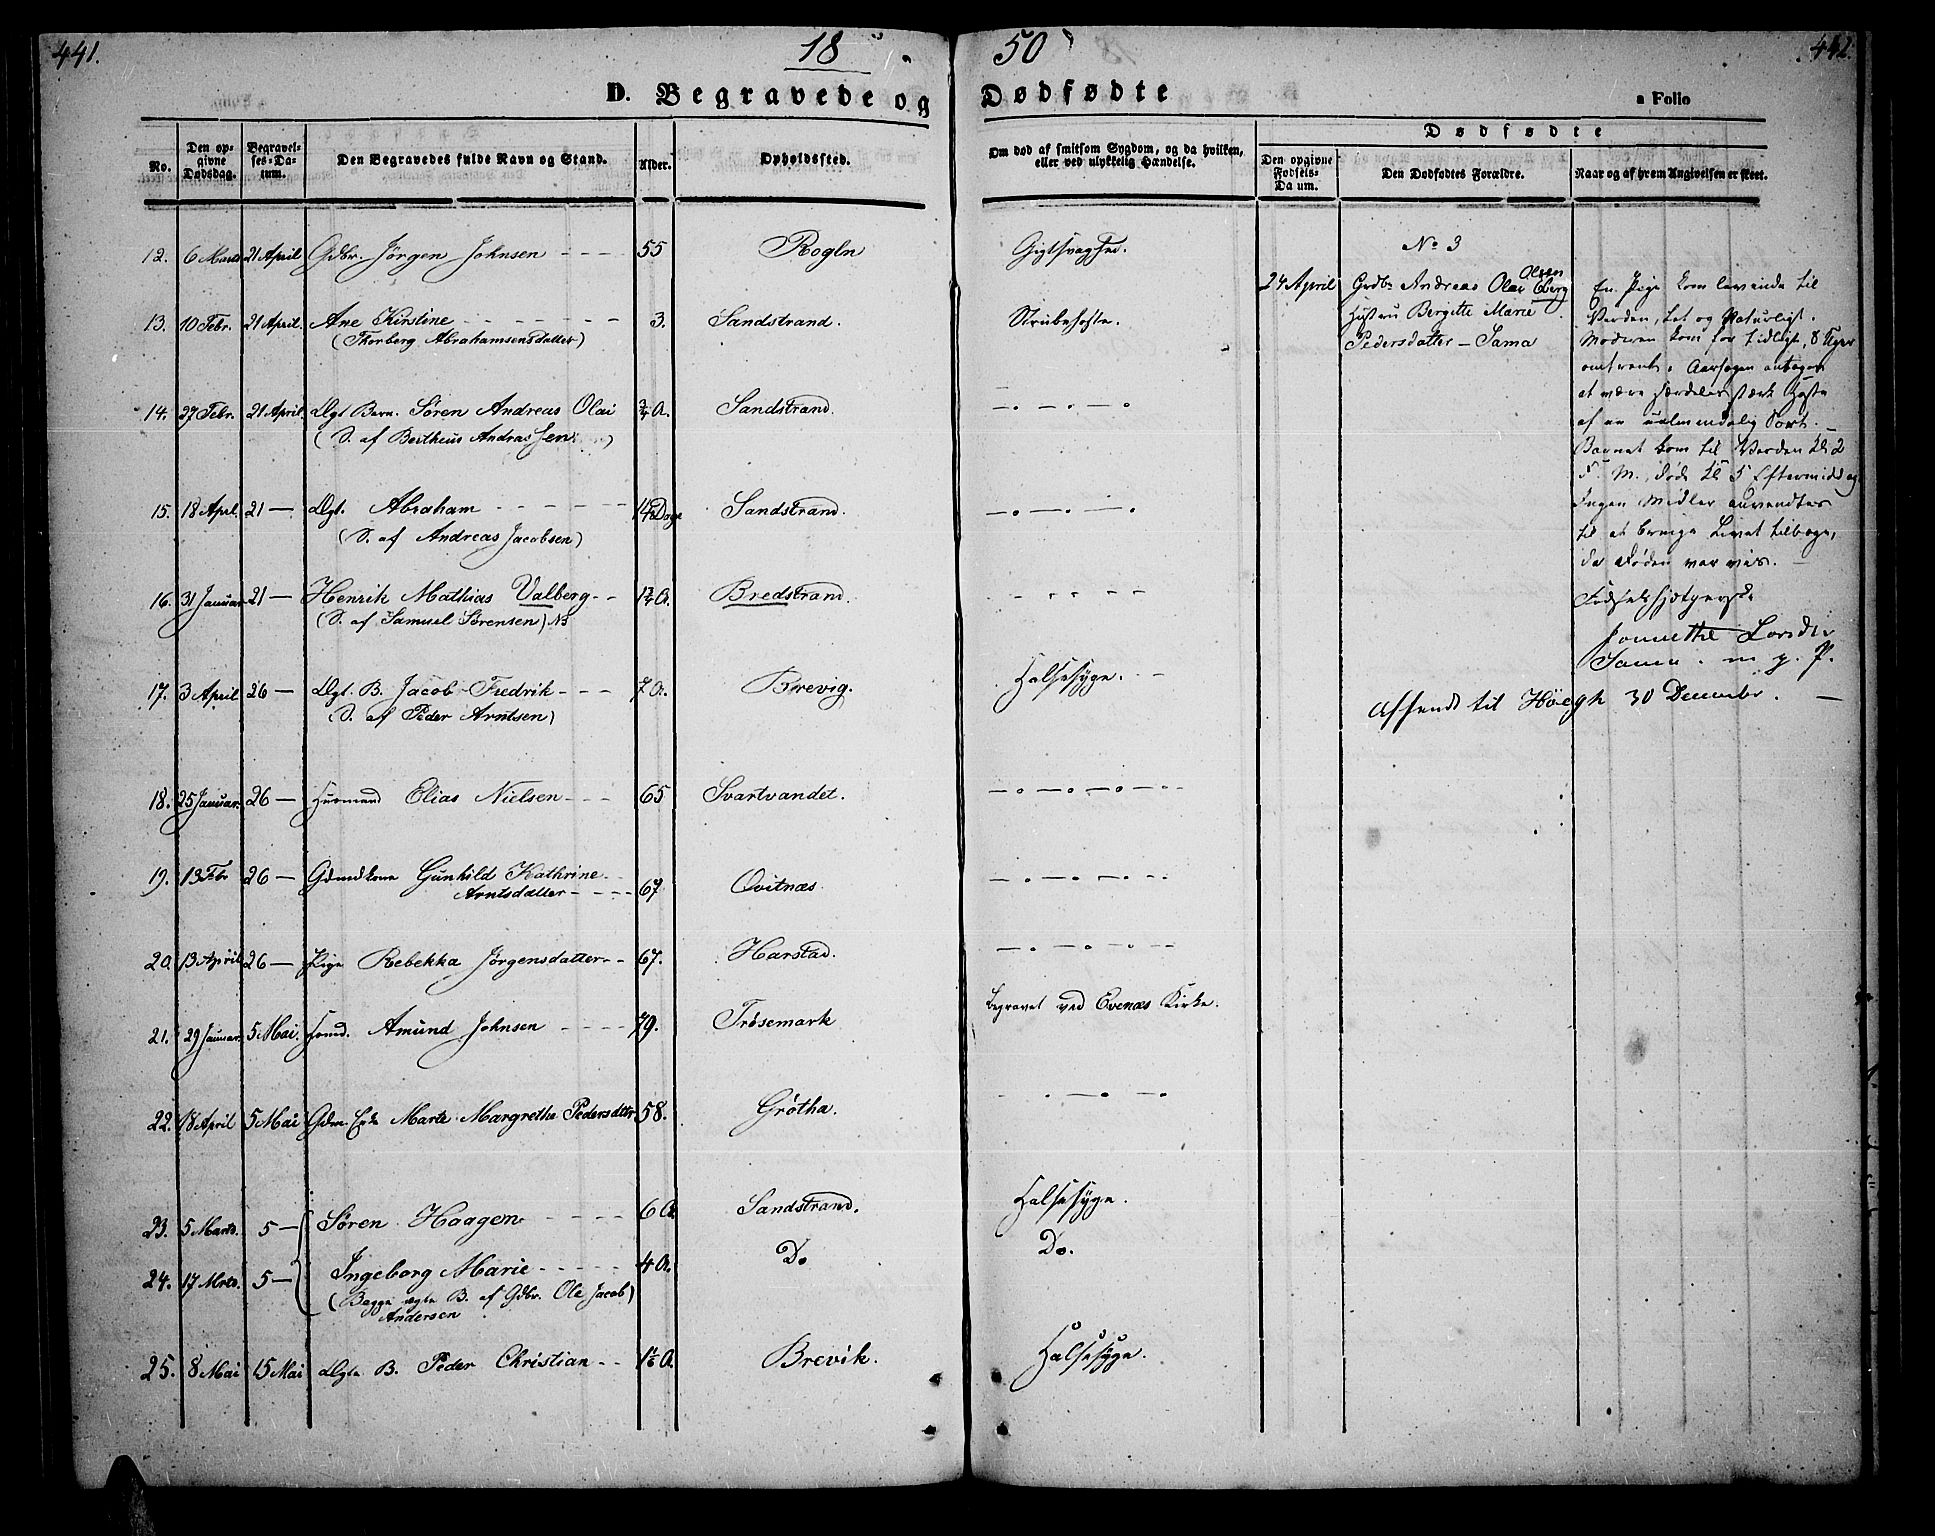 441.
18
50
442.
D. Begravede og
Dødfødte
a Folio
No.
Den opgivne Dødsdag.
Begravelses-Datum.
Den Begravedes fulde Navn og Stand.
Alder.
Opholdssted.
Om død af smitsom Sygdom, og da hvilken,
eller ved ulykkelig Hændelse.
Dødfødte
Den opgivne Fødsels-Da um.
Den Dødfødtes Forældre.
Naar og af hvem Angivelsen er skeet.
12. 6 Marts 21 April Gdbr. Jörgen Johnsen 55 Rogln Gigtsvaghed.
13. 10 Febr. 21 April. Ane Kirstine 3. Sandstrand. Strubehoste.
(Thorberg Abrahamsensdatter)
14. 27 Febr. 21 April. Ægt Barn. Søren Andreas Olai ¾ A. Sandstrand. — . — . — . — .
(S. af Bertheus Andreassen)
15. 18 April. 21 — Ægt. Abraham Dage Sandstrand. — . — . — .
(S. af Andreas Jacobsen)
16. 31 Januar 21 — Henrik Mathias Valberg A. Bredstrand.
(S. af Samuel Sörensen)
17. 3 April 26 — Ægt. B. Jacob Fredrik 7 A. Brevig. Halsesyge.
(S. af Peder Arntsen)
18. 25 Januar. 26 — Husmand Elias Nielsen 65 Svartvandet. — . — . — . —
19. 13 Febr 26 — Gdmdkone Gunhild Kathrine
Arntsdatter 67 Qvitnæs — . — . — .
20. 13 April 26 — Pige Rebekka Jørgensdatter 67. Harstad. — . — . — .
21. 29 Januar. 5 Mai. Amund Johnsen 79. Trösemark begravet ved Evenæs Kirke.
22. 18 April 5 Mai Gdm. Enke Marte Margrethe Pedersdtter 58. Grötha. — . — . — .
23. 5 Marts. 5 — Søren Haagen 6 A. Sandstrand. Halsesyge.
24. 17 Mrts. 5 — Ingeborg Marie 4 A. Do Do.
(Begge ægte B. af Gdbr. Ole Jacob)
Andersen
25. 8 Mai 15 Mai Ægte B. Peder Christian A. Brevik. Halsesyge.
No 3
24 April Grdbr Andreas Olai Olsen Eberg
Hustru Bergitte Marie
Pedersdatter — Sama
En Pige kom levende til
Verden, let og Naturligt.
Moderen kom for tidligt, 8 Uger
omtrent. Aarsagen antages
at være særdeles stærk Hoste
af en ualmindelig Sort. —
Barnet kom til Verden Kl. 2
F. M., døde Kl 5 Eftermiddag
Ingen Midler anvendtes
til at bringe Livet tilbage,
da Døden var vis.
Fødselshjælperske
Sama. m. p. P.
Afsendt til Höegh 30 December. —